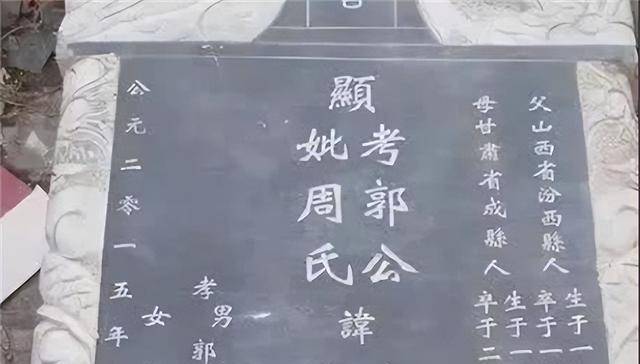 父山西省汾西縣人
生于一
卒于一
母甘肅省成縣人
生于一
卒于二
顯
考郭公
妣周氏
諱
孝男郭
女
公元二零一五年